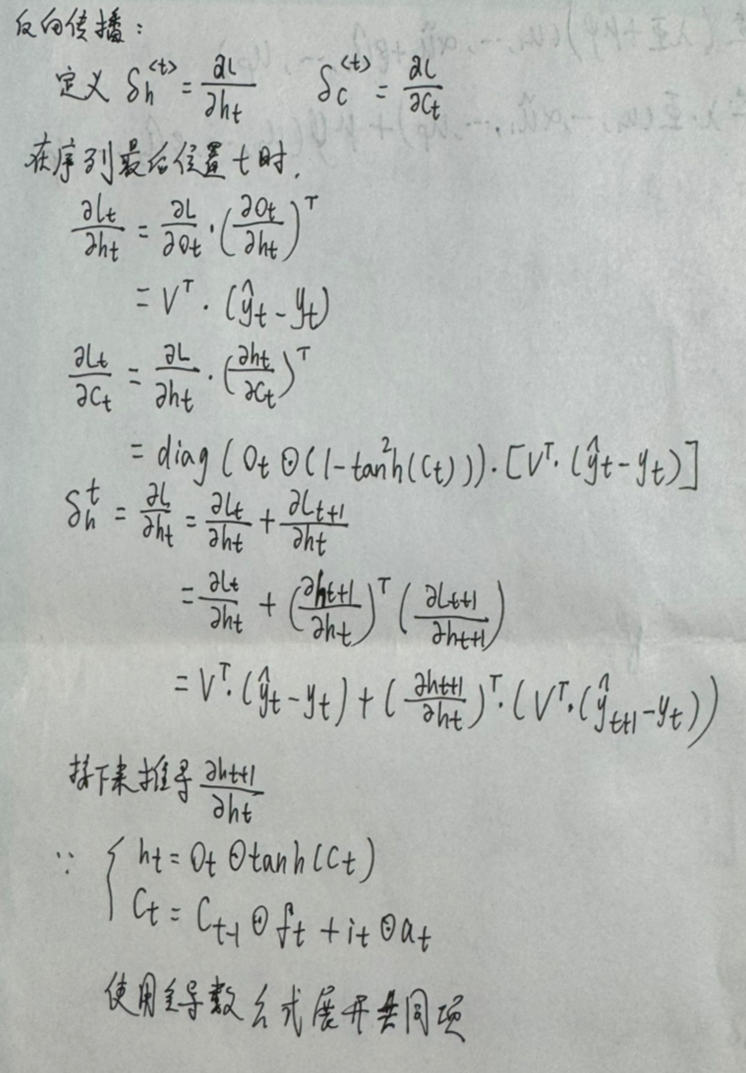 反向传播：
定义 δ_h^{<t>} = ∂L/∂h_t  δ_c^{<t>} = ∂L/∂C_t
在序列最后位置 t 时.
∂L_t/∂h_t = ∂L/∂O_t · (∂O_t/∂h_t)^T
= V^T · (ŷ_t - y_t)
∂L_t/∂C_t = ∂L/∂h_t · (∂h_t/∂C_t)^T
= diag(O_t ⊙ (1 - tanh²(C_t))) · [V^T · (ŷ_t - y_t)]
δ_h^t = ∂L/∂h_t = ∂L_t/∂h_t + ∂L_{t+1}/∂h_t
= ∂L_t/∂h_t + (∂h_{t+1}/∂h_t)^T (∂L_{t+1}/∂h_{t+1})
= V^T · (ŷ_t - y_t) + (∂h_{t+1}/∂h_t)^T · (V^T · (ŷ_{t+1} - y_t))
接下来推导 ∂h_{t+1}/∂h_t
∵ { h_t = O_t ⊙ tanh(C_t)
C_t = C_{t-1} ⊙ f_t + i_t ⊙ a_t
使用全导数公式展开共同项